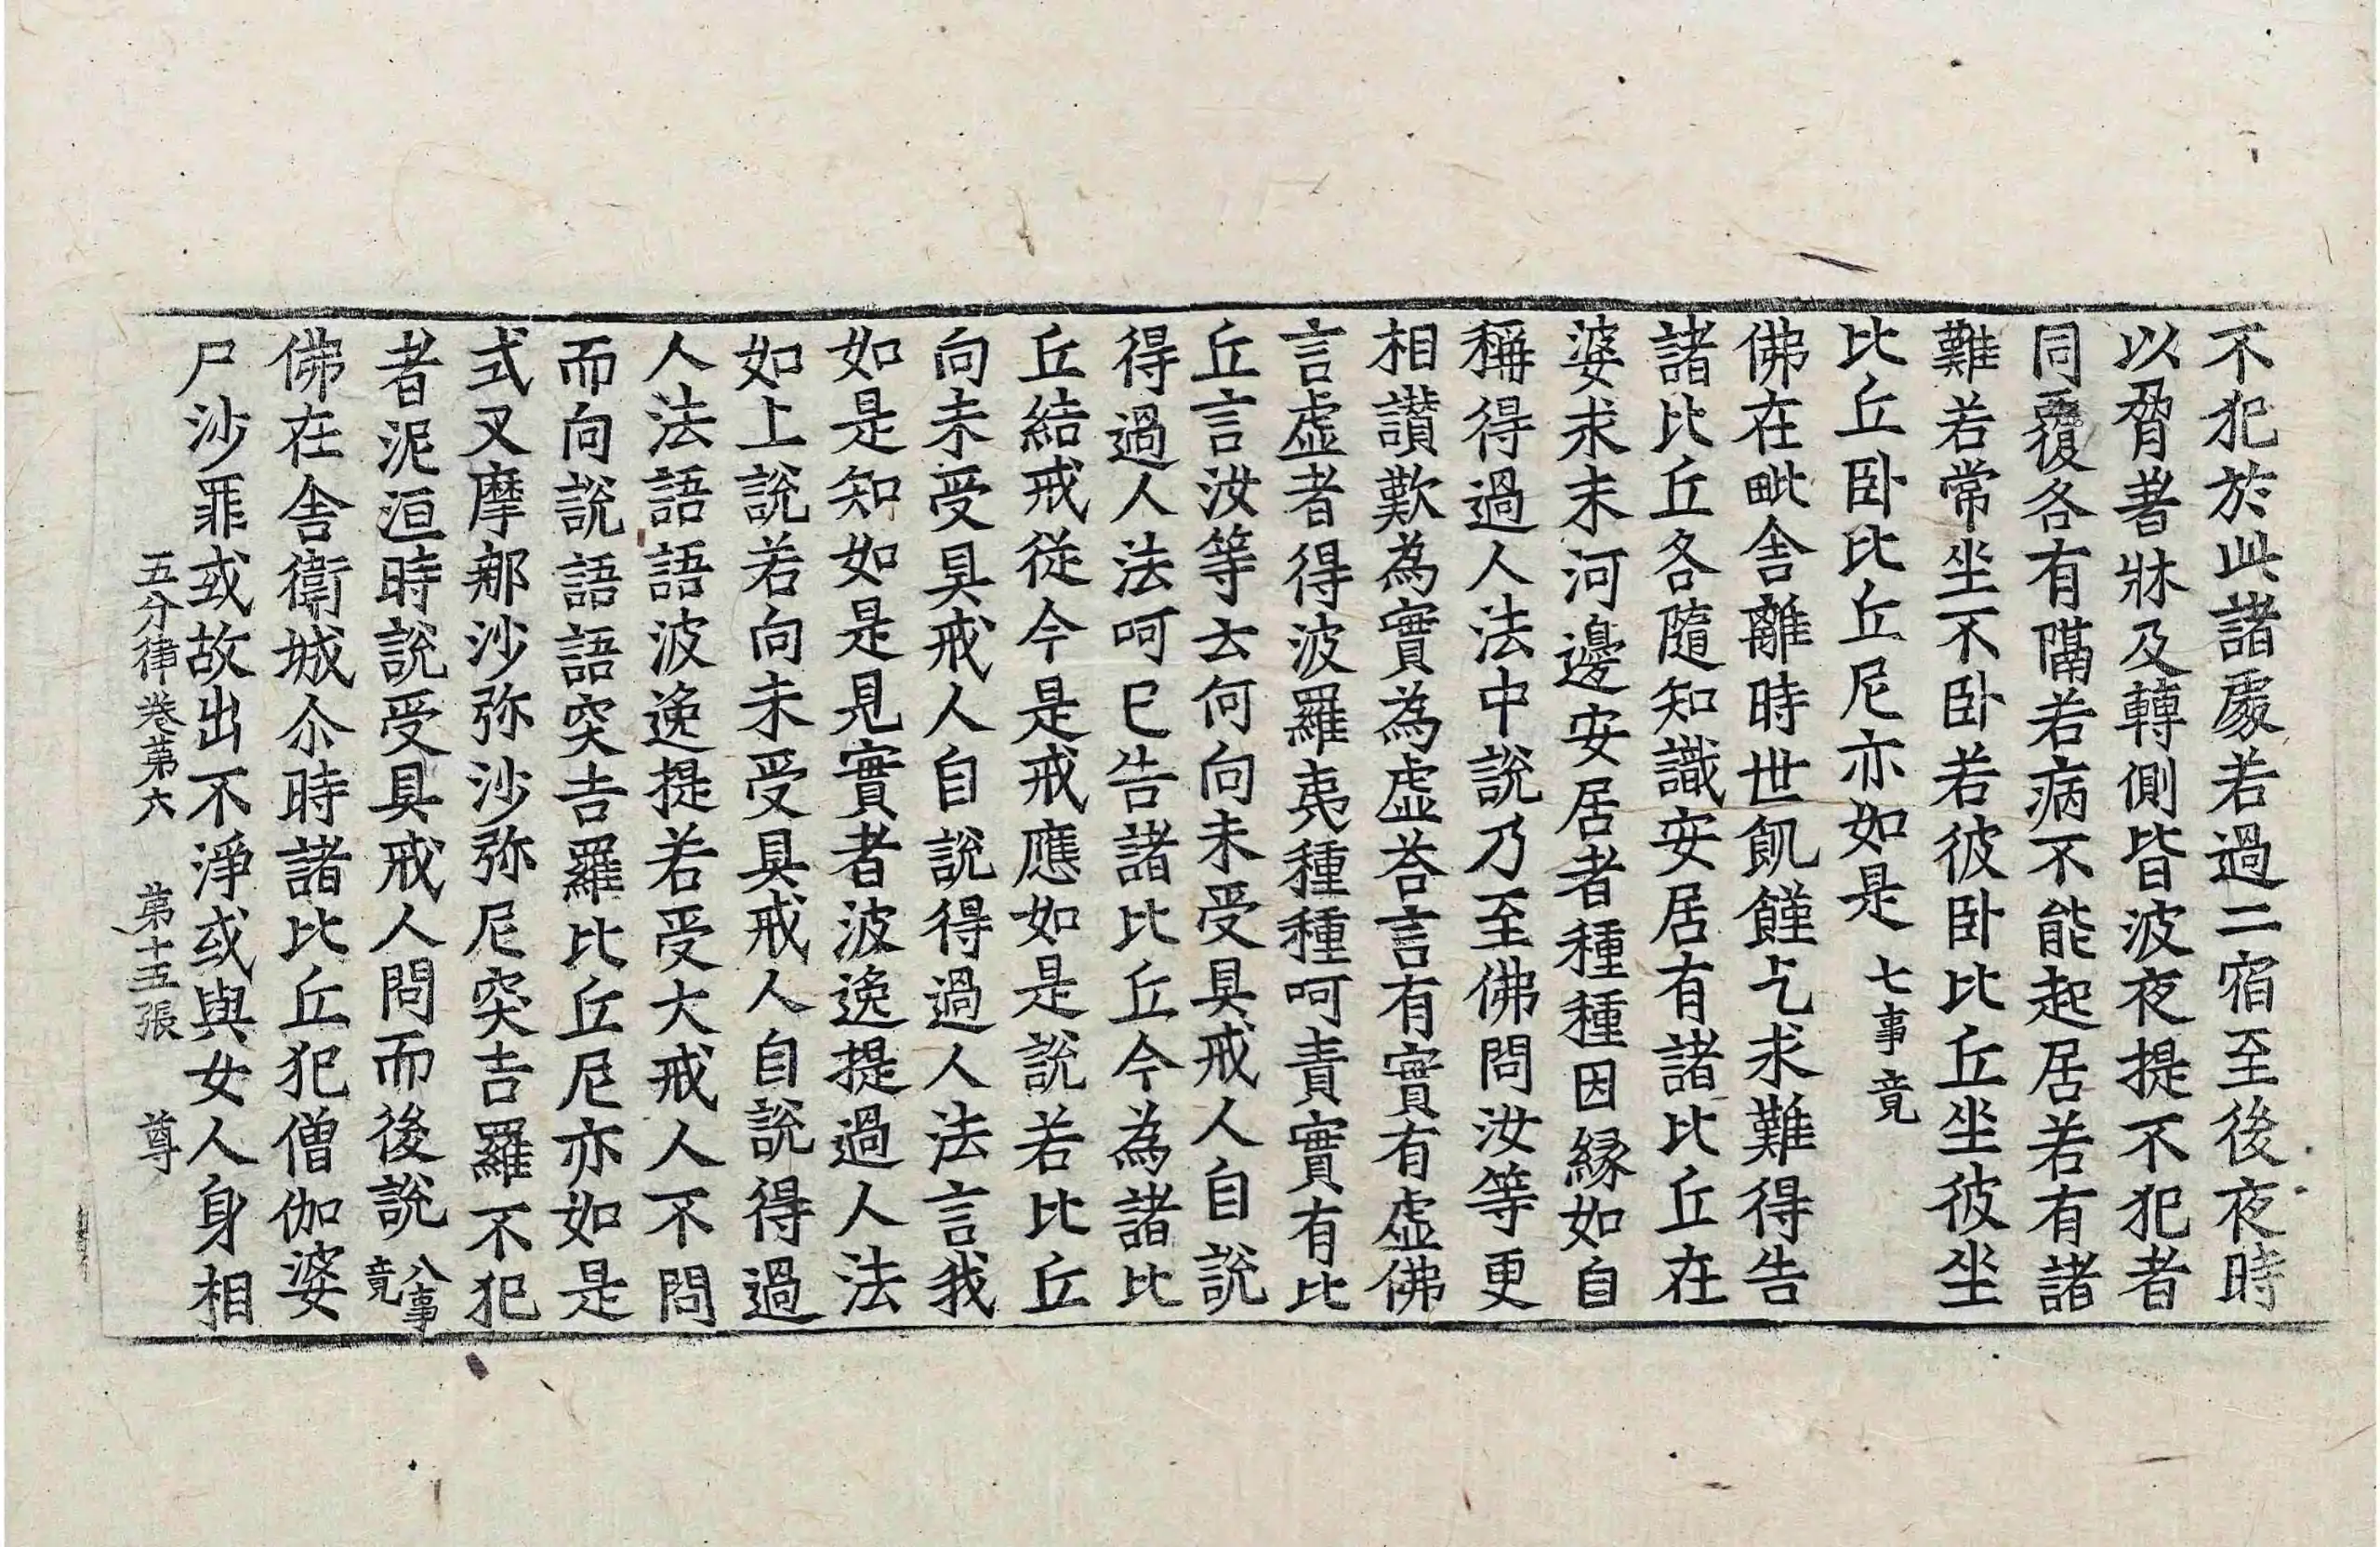 不犯於此諸處若過二宿至後夜時
以脅著牀及轉側皆波夜提不犯者
同覆各有隔若病不能起居若有諸
難若常坐不卧若彼卧比丘坐彼坐
比丘卧比丘尼亦如是七事竟
佛在毗舍離時世飢饉乞求難得告
諸比丘各隨知識安居有諸比丘在
婆求末河邊安居者種種因緣如自
稱得過人法中說乃至佛問汝等更
相讚歎為實為虛荅言有實有虛佛
言虛者得波羅夷種種呵責實有比
丘言汝等云何向未受具戒人自說
得過人法呵已告諸比丘今為諸比
丘結戒從今是戒應如是說若比丘
向未受具戒人自說得過人法言我
如是知如是見實者波逸提過人法
如上說若向未受具戒人自說得過
人法語語波逸提若受大戒人不問
而向說語語突吉羅比丘尼亦如是
式叉摩那沙弥沙弥尼突吉羅不犯
者泥洹時說受具戒人問而後說八事竟
佛在舍衛城尒時諸比丘犯僧伽婆
尸沙罪或故出不淨或與女人身相
五分律卷第六 第十五張 尊